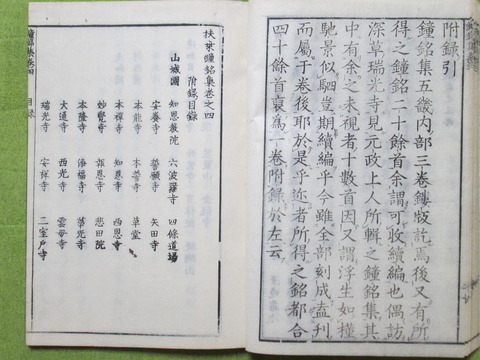 附錄引
鐘銘集五畿內部三卷鏤版訖焉後又有所
得之鐘銘二十餘首余謂可收續編也偶訪
深草瑞光寺見元政上人所輯之鐘銘集其
中有余之未視者十數首因又謂浮生如槿
馳景似駟豈期續編乎今雖全部刻成盍刊
而屬于卷後耶於是乎迩者所得之銘都合
四十餘首裒為一卷附錄於左云
扶桒鐘銘集卷之四
附錄目錄
山城國
知恩教院 六波羅寺 四條道場
安養寺 誓願寺 矢田寺
本能寺 本善寺 草堂
本禪寺 知恩寺 西恩寺
妙覺寺 報恩寺 悲田院
本隆寺 淨福寺 華光寺
大通寺 西光寺 雲母寺
瑞光寺 安祥寺 三室戶寺
目錄